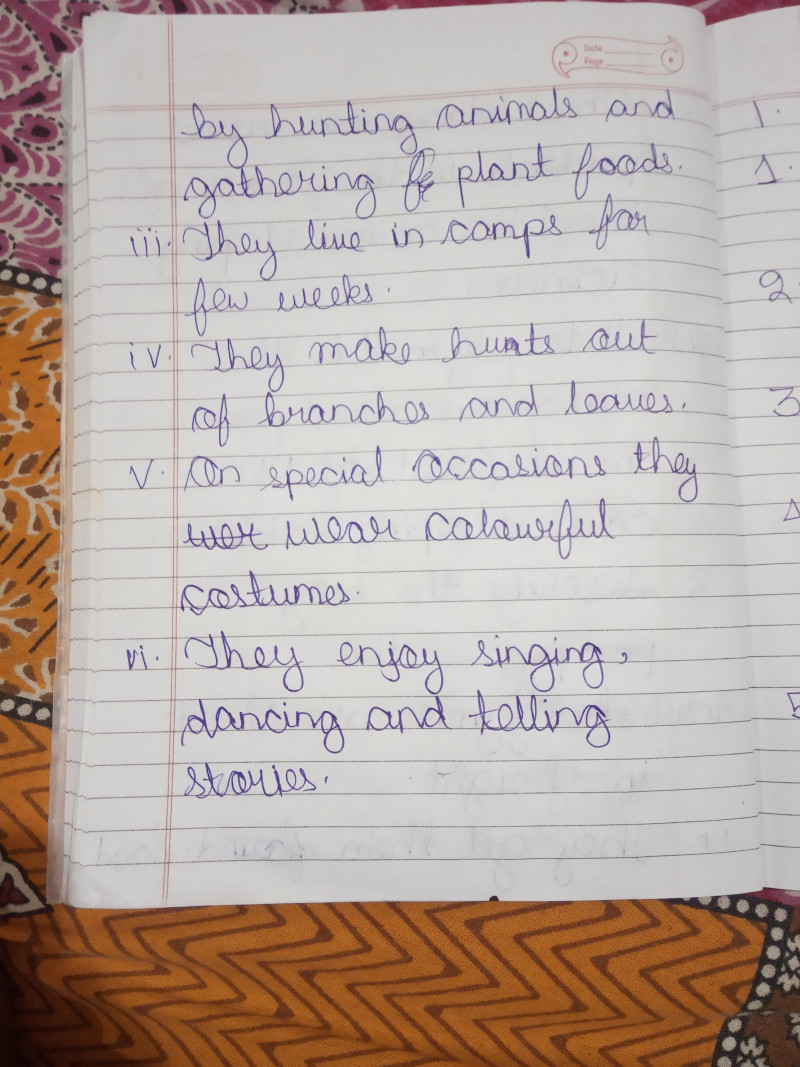 Date
Page
by hunting animals and
gathering plant foods.
iii. They live in camps for
few weeks.
iv. They make hunts out
of branches and leaves.
v. On special occasions they
wear colourful
costumes.
vi. They enjoy singing,
dancing and telling
stories.
1.
1.
2.
3
4
5